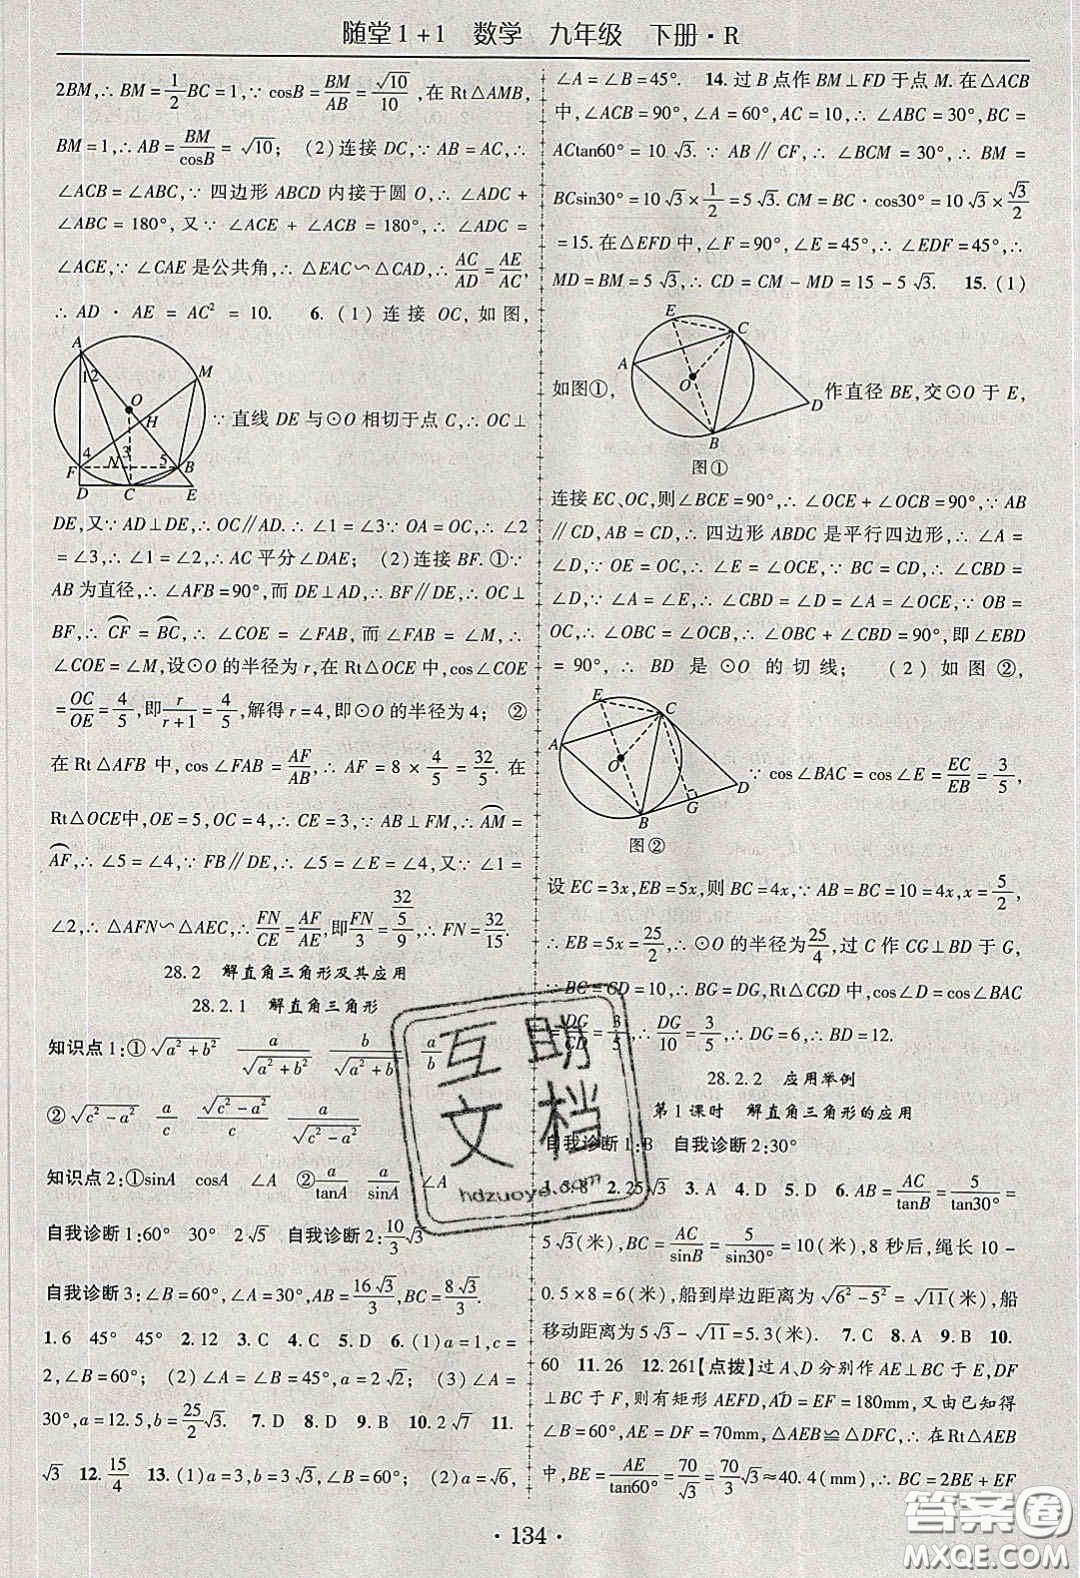 随堂1+1 数学 九年级 下册·R
2BM,∴BM=1/2BC=1,∵cosB=BM/AB=√10/10,在Rt△AMB,
BM=1,∴AB=BM/cosB=√10; (2)连接DC,∵AB=AC,∴
∠ACB=∠ABC,∵四边形ABCD内接于圆O,∴∠ADC+
∠ABC=180°,又∵∠ACE+∠ACB=180°,∴∠ADC=
∠ACE,∵∠CAE是公共角,∴△EAC∽△CAD,∴AC/AD=AE/AC,
∴AD·AE=AC²=10. 6.(1)连接OC,如图,
A M 1 2 O H 4 3 5 F N B D C E
∵直线DE与⊙O相切于点C,∴OC⊥
DE,又∵AD⊥DE,∴OC∥AD.∴∠1=∠3∵OA=OC,∴∠2
=∠3,∴∠1=∠2,∴AC平分∠DAE; (2)连接BF.①∵
AB为直径,∴∠AFB=90°,而DE⊥AD,∴BF∥DE,∴OC⊥
BF,∴⌒CF=⌒BC,∴∠COE=∠FAB,而∠FAB=∠M,∴
∠COE=∠M,设⊙O的半径为r,在Rt△OCE中,cos∠COE
=OC/OE=4/5,即r/(r+1)=4/5,解得r=4,即⊙O的半径为4; ②
在Rt△AFB中,cos∠FAB=AF/AB,∴AF=8×4/5=32/5.在
Rt△OCE中,OE=5,OC=4,∴CE=3,∵AB⊥FM,∴⌒AM=
⌒AF,∴∠5=∠4,∵FB∥DE,∴∠5=∠E=∠4,又∵∠1=
∠2,∴△AFN∽△AEC,∴FN/CE=AF/AE,即FN/3=(32/5)/9,∴FN=32/15.
28.2 解直角三角形及其应用
28.2.1 解直角三角形
知识点1:①√(a²+b²) a/√(a²+b²) b/√(a²+b²) a/b
②√(c²-a²) a/c √(c²-a²)/c a/√(c²-a²)
知识点2:①sinA cosA ∠A ②a/tanA a/sinA ∠A
自我诊断1:60° 30° 2√5 自我诊断2:10/3√3
自我诊断3:∠B=60°,∠A=30°,AB=16√3/3,BC=8√3/3.
1.6 45° 45° 2.12 3.C 4.C 5.D 6.(1)a=1,c=
2,∠B=60°; (2)∠A=∠B=60°,a=2; (3)∠A=
30°,a=12.5,b=25/2√3. 7.D 8.D 9.B 10.2√7 11.
√3 12.15/4 13.(1)a=3,b=3√3,∠B=60°; (2)a=√6,
∠A=∠B=45°. 14.过B点作BM⊥FD于点M.在△ACB
中,∠ACB=90°,∠A=60°,AC=10,∴∠ABC=30°,BC=
ACtan60°=10√3.∵AB∥CF,∴∠BCM=30°,∴BM=
BCsin30°=10√3×1/2=5√3.CM=BC·cos30°=10√3×√3/2
=15.在△EFD中,∠F=90°,∠E=45°,∴∠EDF=45°,∴
MD=BM=5√3,∴CD=CM-MD=15-5√3. 15.(1)
如图①,
E C A O D B
图①
作直径BE,交⊙O于E,
连接EC、OC,则∠BCE=90°,∴∠OCE+∠OCB=90°,∵AB
∥CD,AB=CD,∴四边形ABDC是平行四边形,∴∠A=
∠D,∵OE=OC,∴∠E=∠OCE,∵BC=CD,∴∠CBD=
∠D,∵∠A=∠E,∴∠CBD=∠D=∠A=∠OCE,∵OB=
OC,∴∠OBC=∠OCB,∴∠OBC+∠CBD=90°,即∠EBD
=90°,∴BD是⊙O的切线; (2)如图②,
E C A O D G B
图②
∵cos∠BAC=cos∠E=EC/EB=3/5,
设EC=3x,EB=5x,则BC=4x,∵AB=BC=10=4x,x=5/2,
∴EB=5x=25/2,∴⊙O的半径为25/4,过C作CG⊥BD于G,
∵BC=CD=10,∴BG=DG,Rt△CGD中,cos∠D=cos∠BAC
=DG/CD=3/5,∴DG/10=3/5,∴DG=6,∴BD=12.
28.2.2 应用举例
第1课时 解直角三角形的应用
自我诊断1:B 自我诊断2:30°
1.5.8 2.25√3 3.A 4.D 5.D 6.AB=AC/tanB=5/tan30°=
5√3(米),BC=AC/sinB=5/sin30°=10(米),8秒后,绳长10-
0.5×8=6(米),船到岸边距离为√(6²-5²)=√11(米),船
移动距离为5√3-√11=5.3(米). 7.C 8.A 9.B 10.
60 11.26 12.261【点拨】过A、D分别作AE⊥BC于E,DF
⊥BC于F,则有矩形AEFD,AD=EF=180mm,又由已知得
∠B=60°,AE=DF=70mm,△AEB≌△DFC,∴在Rt△AEB
中,BE=AE/tan60°=70/√3=70/3√3≈40.4(mm),∴BC=2BE+EF
·134·
互助文档
hdzuoye.com
答案圈
MXQE.COM